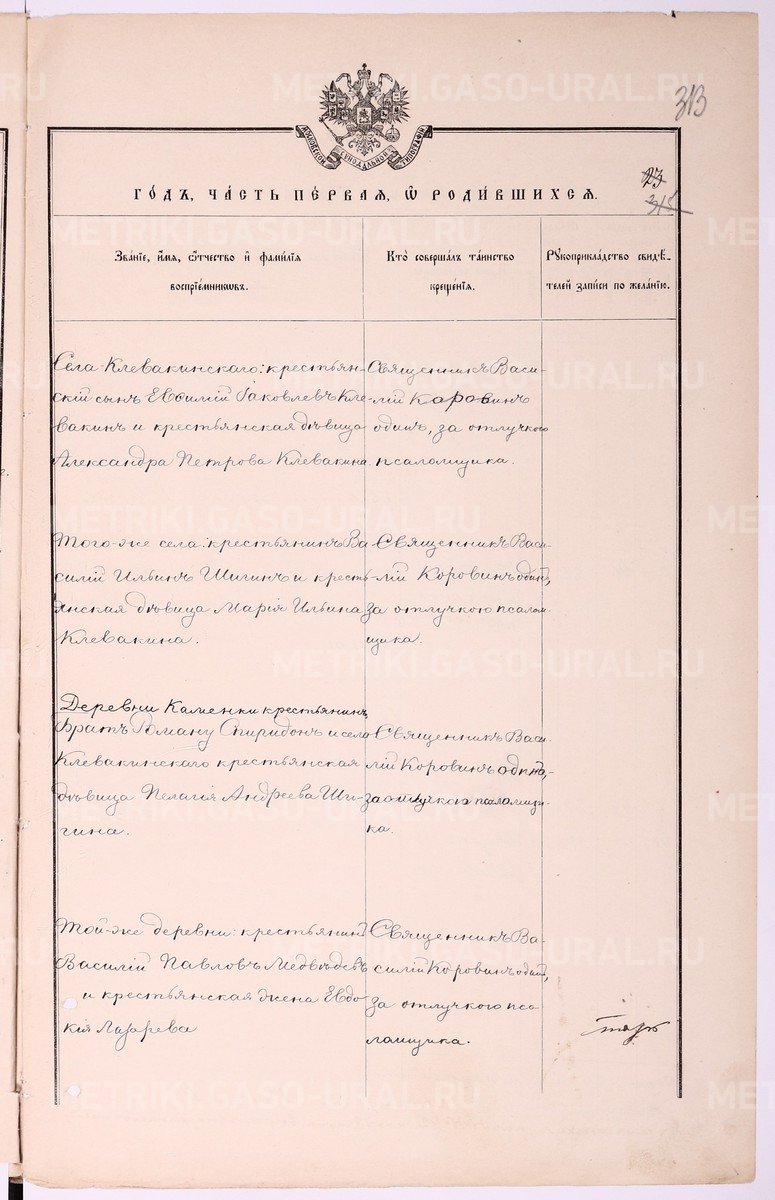 313
ДУХОВНОЙ СѴНОДАЛЬНОЙ ТИПОГРАФІИ
23
315
ГО́ДЪ, ЧА́СТЬ ПЕ́РВАЯ, Ѡ҆ РОДИ́ВШИХСЯ.
Зва́нїе, и҆́мя, ѻ҆́тчество и҆ фами́лїя
воспрїе́мникѡвъ.
Кто̀ соверша́лъ та́инство
креще́нїя.
Рꙋкоприкла́дство свидѣ́-
телей за́писи по жела́нїю.
Села Клевакинскаго: крестьян-
скій сынъ Евѳимій Іаковлевъ Кле-
вакинъ и крестьянская дѣвица
Александра Петрова Клевакина.
Священникъ Васи-
лій Коровинъ
одинъ, за отлучкою
псаломщика.
Того-же села: крестьянинъ Ва
силий Ильинъ Шигинъ и кресть-
янская дѣвица Марія Ильина
Клевакина.
Священникъ Васи-
лій Коровинъ одинъ,
за отлучкою псалом-
щика.
Деревни Каменки крестьянинъ,
братъ Роману Спиридонъ и села
Клевакинскаго крестьянская
дѣвица Пелагія Андреева Ши-
гина.
Священникъ Васи-
лій Коровинъ одинъ,
за отлучкою псаломщи-
ка.
Той-же деревни: крестьянинъ
Василій Павловъ Медвѣдевъ
и крестьянская жена Евдо
кія Лазарева
Священникъ Ва-
силій Коровинъ одинъ,
за отлучкою пса-
ломщика.
METRIKI.GASO-URAL.RU